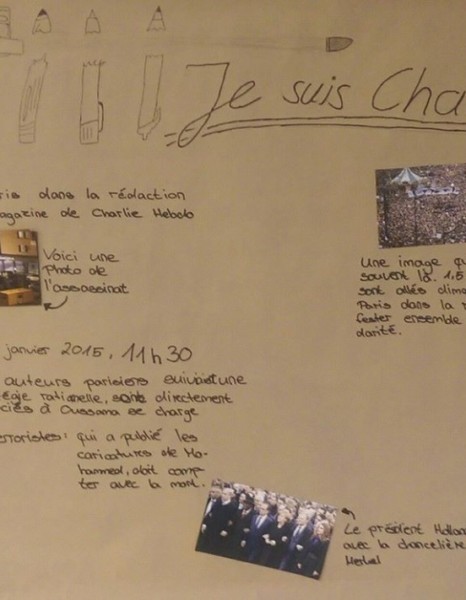 Je suis Cha
ris dans la rédaction
agazine de Charlie Hebdo
Voici une
Photo de
l'assassinat
janvier 2015, 11h30
auteurs parisiers suivaient une
rationelle, sont directement
ciés d Oussama se charge
erroristes: qui a publié les
caricatures de Mo-
hammed, doit comp-
ter avec la mort.
Une image qu
souvent là. 1,5
sont allés dima
Paris dans la r
fester ensemble
darité.
Le président Hollan
avec la chancelière
Merkel